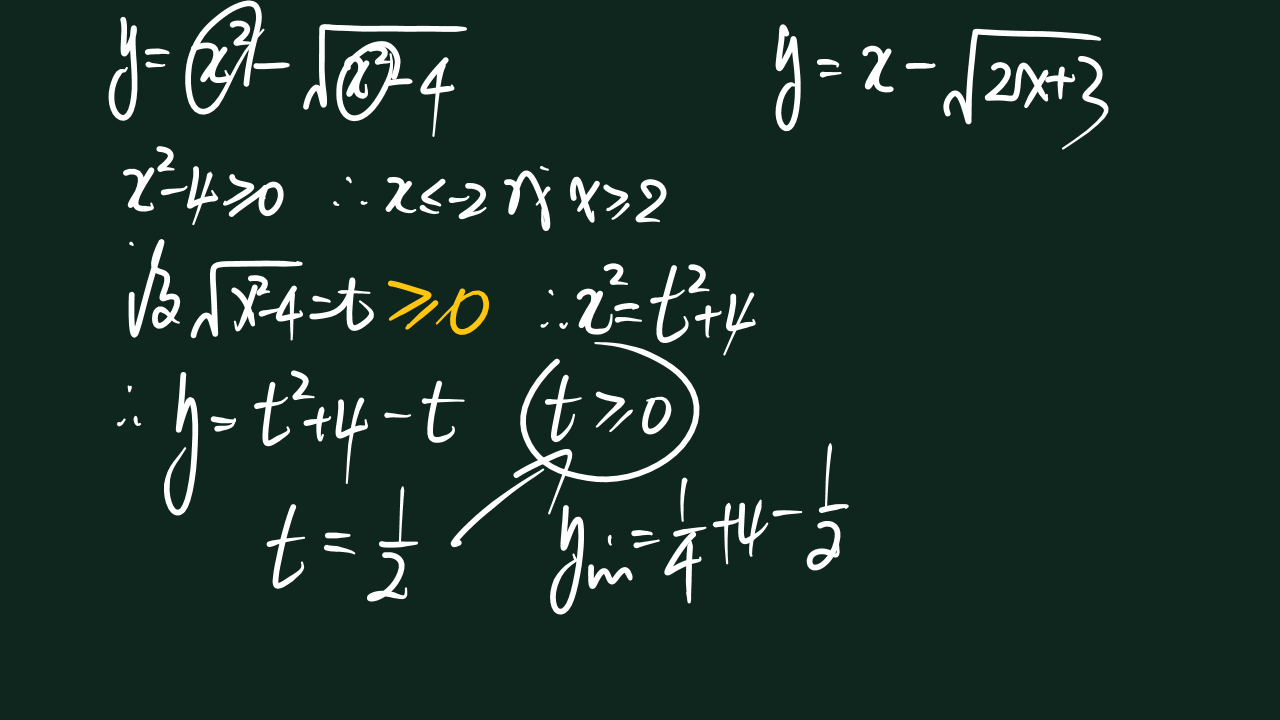 y = x² - √(x² - 4)
y = x - √(2x+3)
x² - 4 ≥ 0 ∴ x ≤ -2 或 x ≥ 2
设 √(x² - 4) = t ≥ 0 ∴ x² = t² + 4
∴ y = t² + 4 - t (t ≥ 0)
t = 1/2 y min = 1/4 + 4 - 1/2